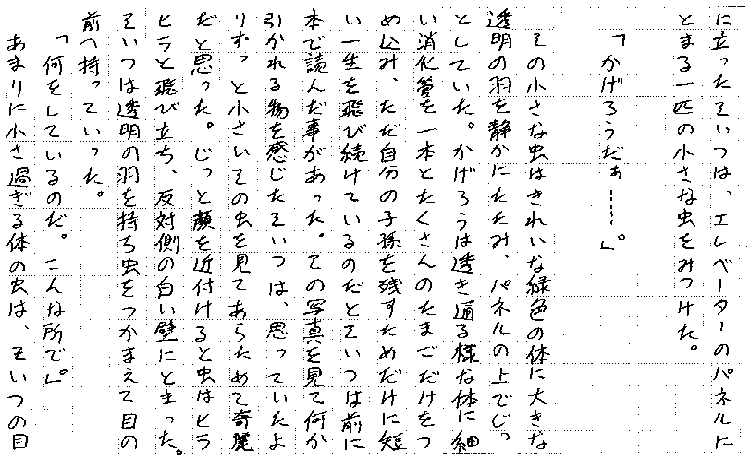 に立ったそいつは、エレベーターのパネルに
とまる一匹の小さな虫をみつけた。
「かげろうだぁ……」。
その小さな虫はきれいな緑色の体に大きな
透明の羽を静かにたたみ、パネルの上でじっ
としていた。かげろうは透き通る様な体に細
い消化管を一本とたくさんのたまごだけをつ
め込み、ただ自分の子孫を残すためだけに短
い一生を飛び続けているのだとそいつは前に
本で読んだ事があった。その写真を見て何か
引かれる物を感じたそいつは、思っていたよ
りずっと小さいその虫を見てあらためて奇麗
だと思った。じっと顔を近付けると虫はヒラ
ヒラと飛び立ち、反対側の白い壁にと止った。
そいつは透明の羽を持ち虫をつかまえて目の
前へ持っていった。
「何をしているのだ。こんな所で」。
あまりに小さ過ぎる体の虫は、そいつの目